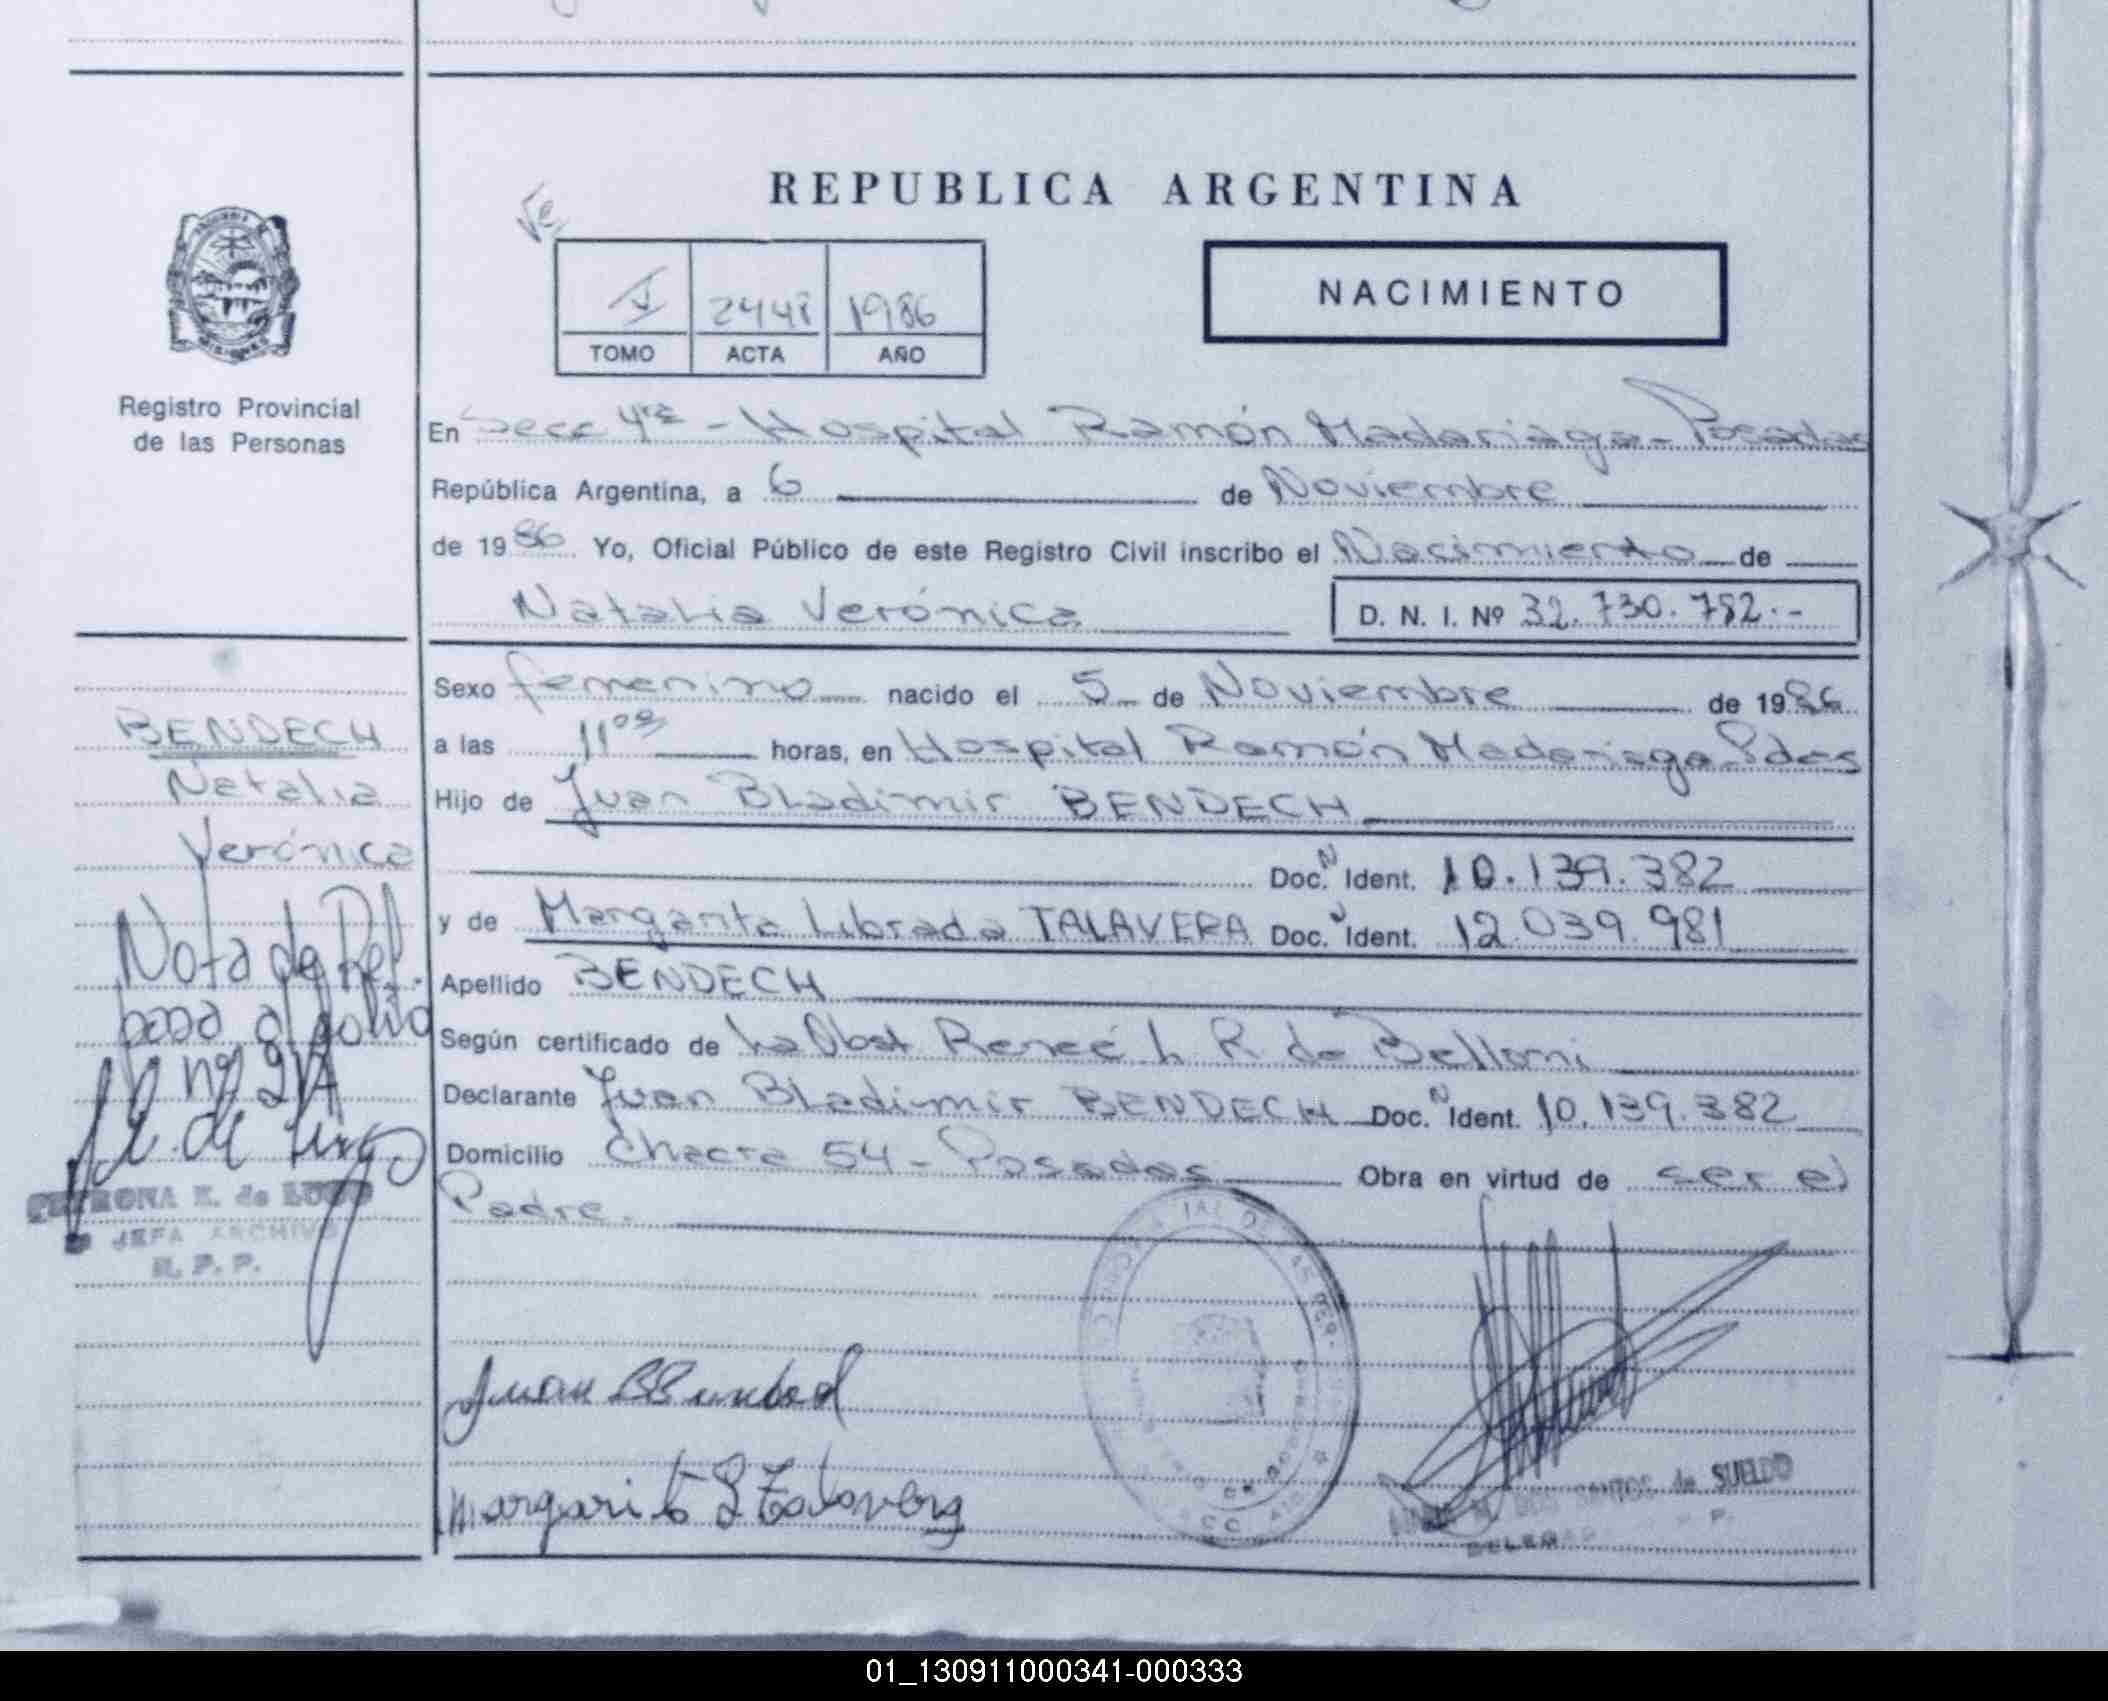 REPUBLICA ARGENTINA
NACIMIENTO
1986
TOMO ACTA AÑO
Registro Provincial
de las Personas
En Secc 4ta - Hospital Ramón Madariaga - Posadas
República Argentina, a 6 de Noviembre
de 1986 Yo, Oficial Público de este Registro Civil inscribo el Nacimiento de
Natalia Verónica D. N. I. Nº 32.730.782.-
Sexo femenino nacido el 5 de Noviembre de 1986
a las 11 00 horas, en Hospital Ramón Madariaga Pdas
Hijo de Juan Bladimir BENDECH
Doc. N Ident. 10.139.382
y de Margarita Librada TALAVERA Doc. N Ident. 12.039.981
Apellido BENDECH
Según certificado de La Obst Reneé L R de Belloni
Declarante Juan Bladimir BENDECH Doc. N Ident. 10.139.382
Domicilio Chacra 54 - Posadas Obra en virtud de ser el
Padre.
BENDECH
Natalia
Verónica
Nota de Ref.
pasa al folio
nº
PETRONA E. de LUGO
JEFA ARCHIVO
R. P. P.
Juan B Bendech
Margarita L Talavera
DOS SANTOS de SUELDO
01_130911000341-000333